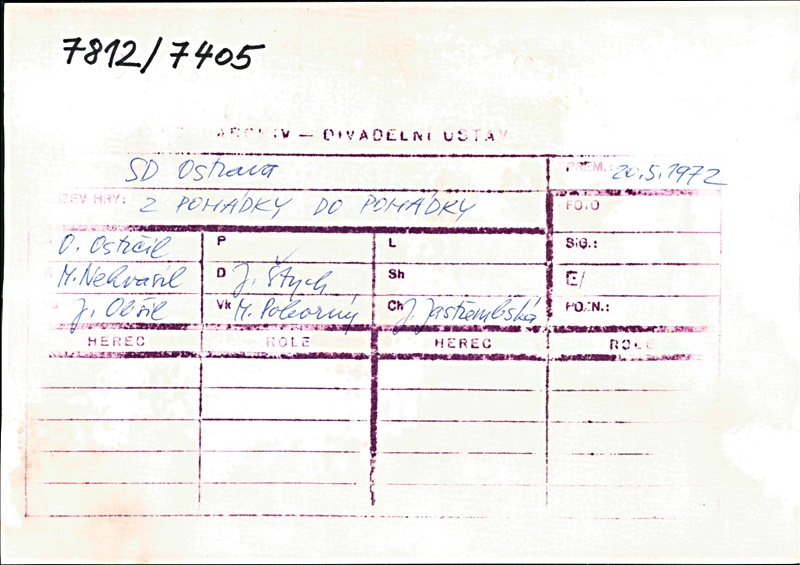 7812/7405
ARCHIV — DIVADELNÍ ÚSTAV
SD Ostrava PREM.: 20.5.1972
ZEV HRY: Z POHÁDKY DO POHÁDKY FOTO
O. Ostrčil P L SIG.:
M. Nekvasil D J. Štych Sh E/
J. Obšil Vk M. Pokorný Ch J. Jastřembská POZN.:
HEREC ROLE HEREC ROLE